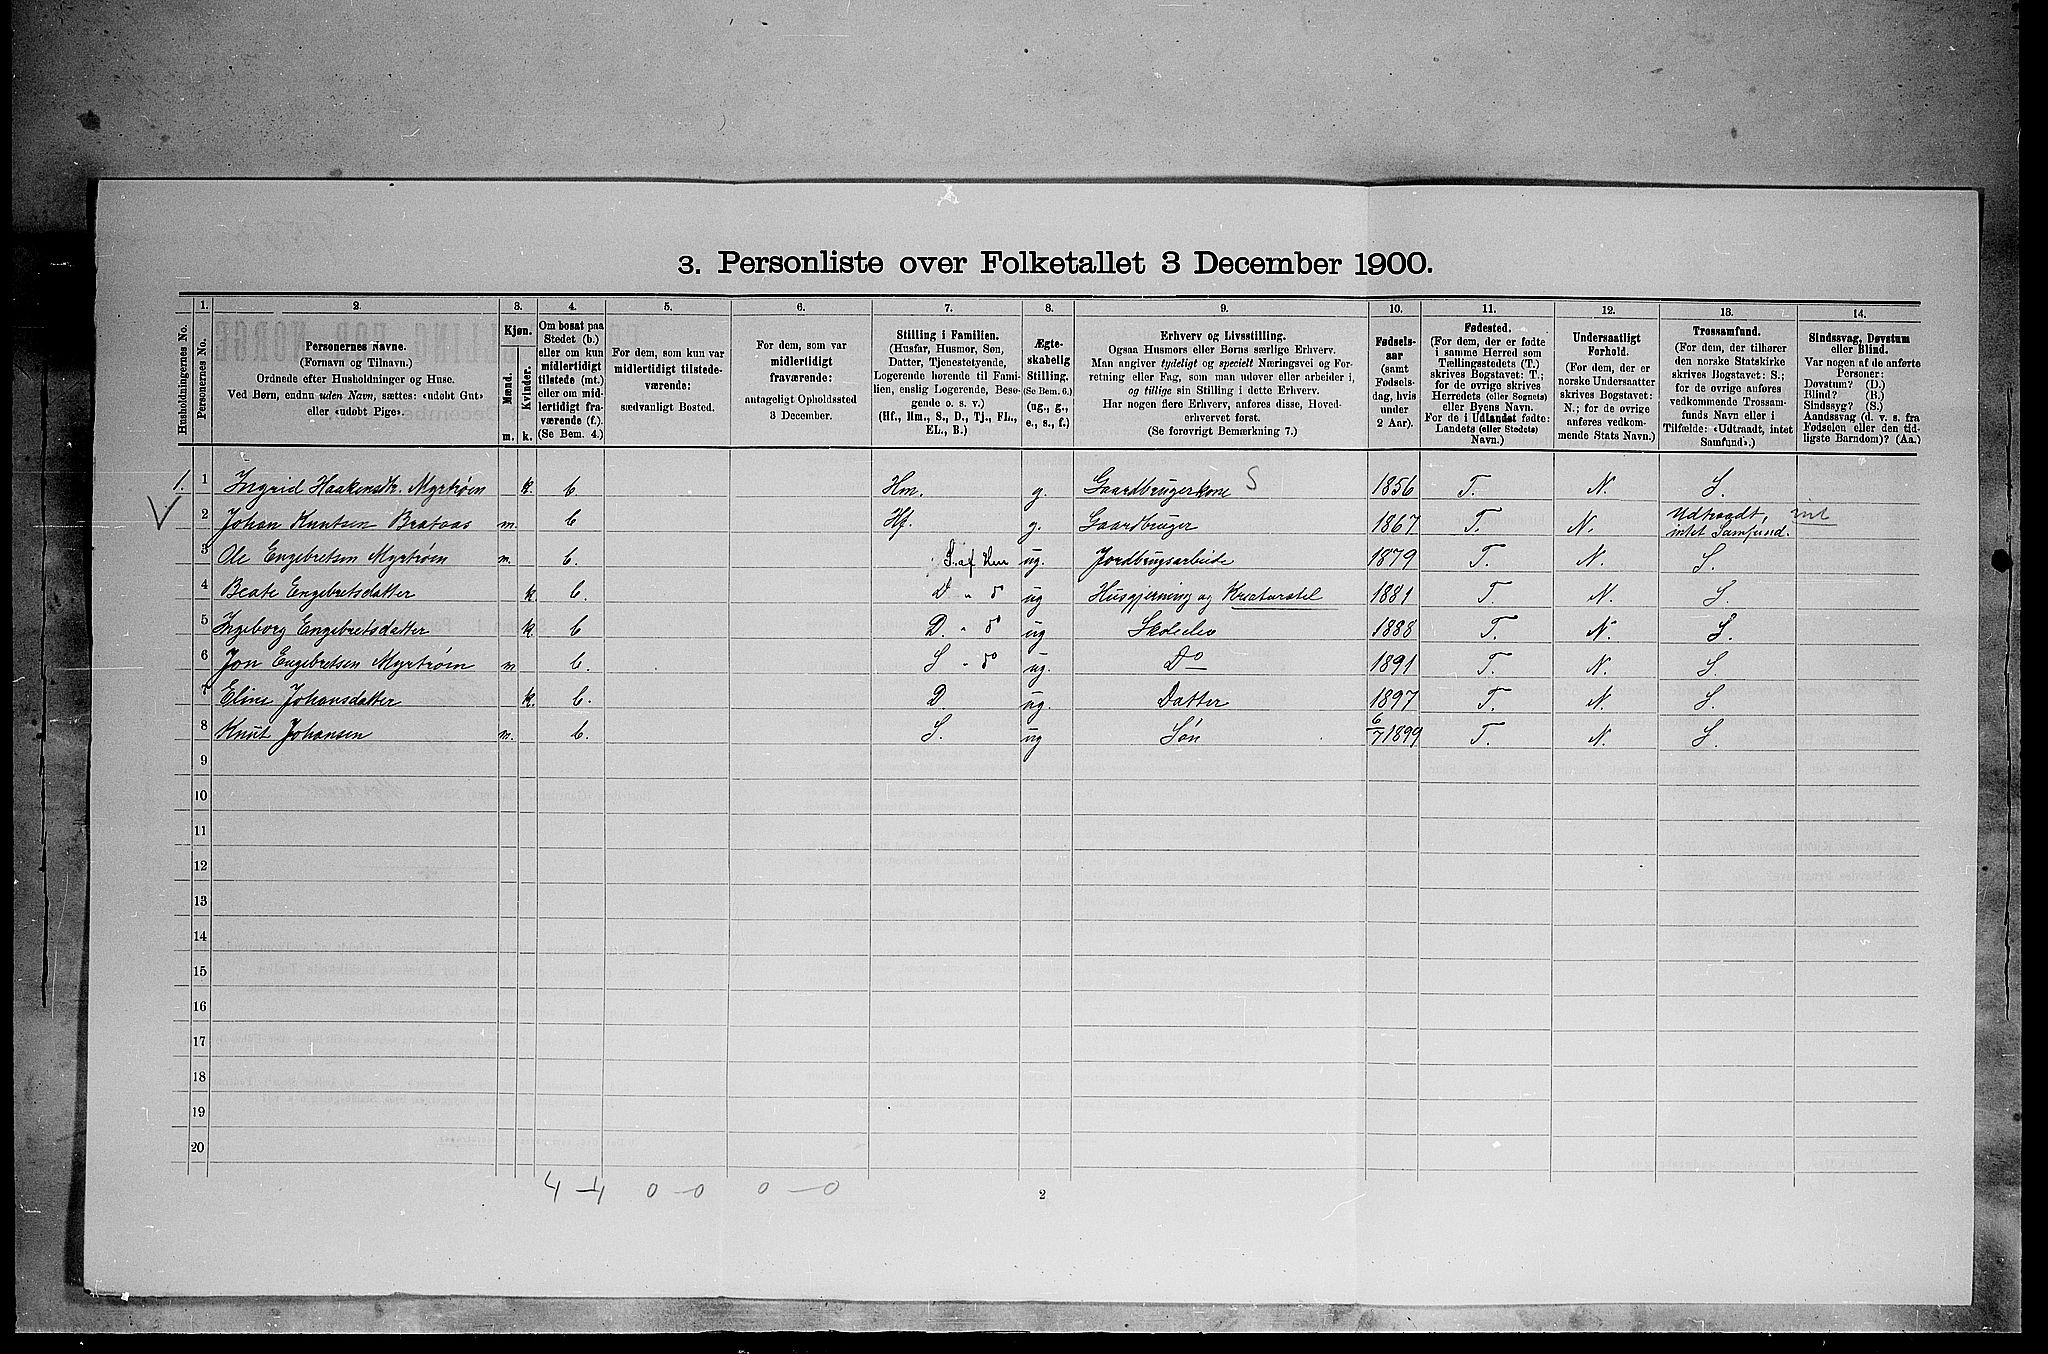 3. Personliste over Folketallet 3 December 1900.
1. 2. 3. 4. 5. 6. 7. 8. 9. 10. 11. 12. 13. 14.
Husholdningernes No.
Personernes No.
Personernes Navne.
(Fornavn og Tilnavn.)
Ordnede efter Husholdninger og Huse.
Ved Børn, endnu uden Navn, sættes: «udobt Gut»
eller «udobt Pige».
Kjøn.
Mænd.
Kvinder.
m. k.
Om bosat paa
Stedet (b.)
eller om kun
midlertidigt
tilstede (mt.)
eller om mid-
lertidigt fra-
værende (f.).
(Se Bem. 4.)
For dem, som kun var
midlertidigt tilstede-
værende:
sædvanligt Bosted.
For dem, som var
midlertidigt
fraværende:
antageligt Opholdssted
3 December.
Stilling i Familien.
(Husfar, Husmor, Søn,
Datter, Tjenestetyende,
Logerende hørende til Fami-
lien, enslig Logerende, Besø-
gende o. s. v.)
(Hf., Hm., S., D., Tj., FL.,
EL., B.)
Ægte-
skabelig
Stilling.
(Se Bem. 6.)
(ug., g.,
e., s., f.)
Erhverv og Livsstilling.
Ogsaa Husmors eller Børns særlige Erhverv.
Man angiver tydeligt og specielt Næringsvei og For-
retning eller Fag, som man udøver eller arbeider i,
og tillige sin Stilling i dette Erhverv.
Har nogen flere Erhverv, anføres disse, Hoved-
erhvervet først.
(Se forøvrigt Bemærkning 7.)
Fødsels-
aar
(samt
Fødsels-
dag, hvis
under
2 Aar).
Fødested.
(For dem, der er fødte
i samme Herred som
Tællingsstedets (T.)
skrives Bogstavet: T.;
for de øvrige skrives
Herredets (eller Sognets)
eller Byens Navn.
For de i Udlandet fødte:
Landets (eller Stedets)
Navn.)
Undersaatligt
Forhold.
(For dem, der er
norske Undersaatter
skrives Bogstavet:
N.; for de øvrige
anføres vedkom-
mende Stats Navn.)
Trossamfund.
(For dem, der tilhører
den norske Statskirke
skrives Bogstavet: S.;
for de øvrige anføres
vedkommende Trossam-
funds Navn eller i
Tilfælde: «Udtraadt, intet
Samfund».)
Sindssvag, Døvstum
eller Blind.
Var nogen af de anførte
Personer:
Døvstum? (D.)
Blind? (B.)
Sindssyg? (S.)
Aandssvag (d. v. s. fra
Fødselen eller den tid-
ligste Barndom)? (Aa.)
1. 1 Ingrid Haakensdtr. Myrtrøen k. b. Hm. g. Gaardbrugerkone S 1856 T. N. S.
V 2 Johan Knutsen Brataas m. b Hf. g. Gaardbruger 1867 T. N. Udtraadt, int
intet Samfund.
3 Ole Engebretsen Myrtrøen m. b. S. af Hm ug. Jordbrugsarbeide 1879 T. N. S.
4 Beate Engebretsdatter k b. D " do ug Husgjerning og Kreaturstel 1881 T. N. S.
5 Ingeborg Engebretsdatter k. b D. " do ug Skoleelev 1888 T. N. S.
6 Jon Engebretsen Myrtrøen m b. S " do ug. Do 1891 T. N. S.
7 Eline Johansdatter k. b. D. ug. Datter 1897 T. N. S.
8 Knut Johansen m. b. S. ug Søn 6/7 1899 T. N. S.
9
10
11
12
13
14
15
16
17
18
19
20
4 – 4 0 – 0 0 – 0
2